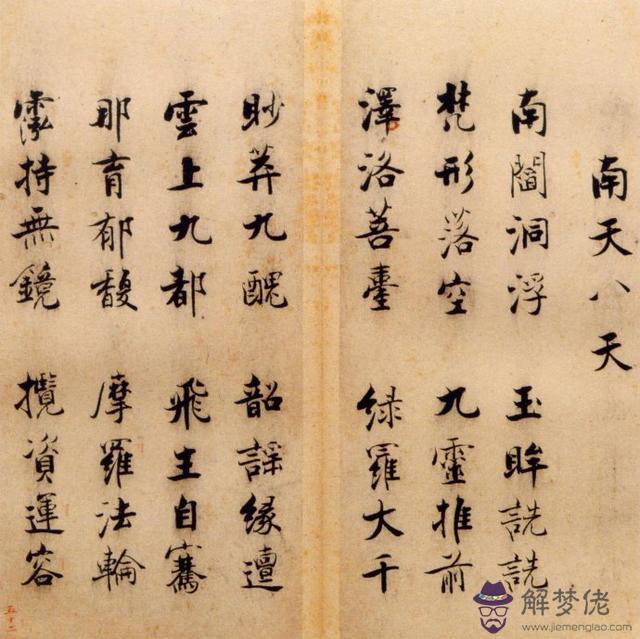 南天八天
南閻洞浮 玉眸詵詵
梵形落空 九靈推前
澤洛菩臺 緑羅大千
眇莽九醜 韶謠緣邅
雲上九都 飛生自騫
那育郁馥 摩羅法輪
霐持無鏡 攬資運容
五十二
解梦佬
www.jiemenglao.com